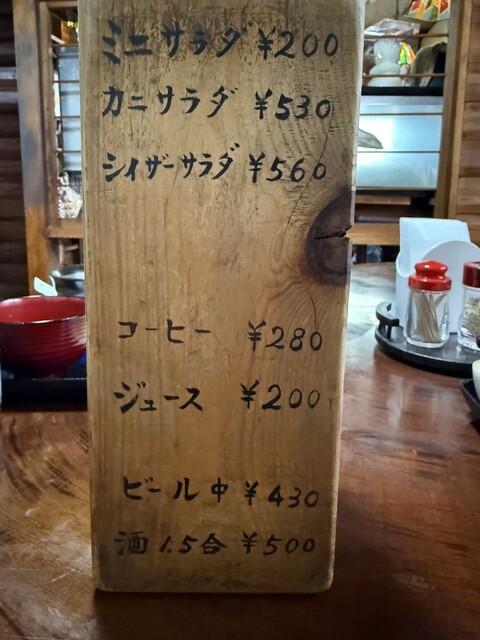 ミニサラダ ¥200
カニサラダ ¥530
シイザーサラダ ¥560
コーヒー ¥280
ジュース ¥200
ビール中 ¥430
酒 1.5合 ¥500